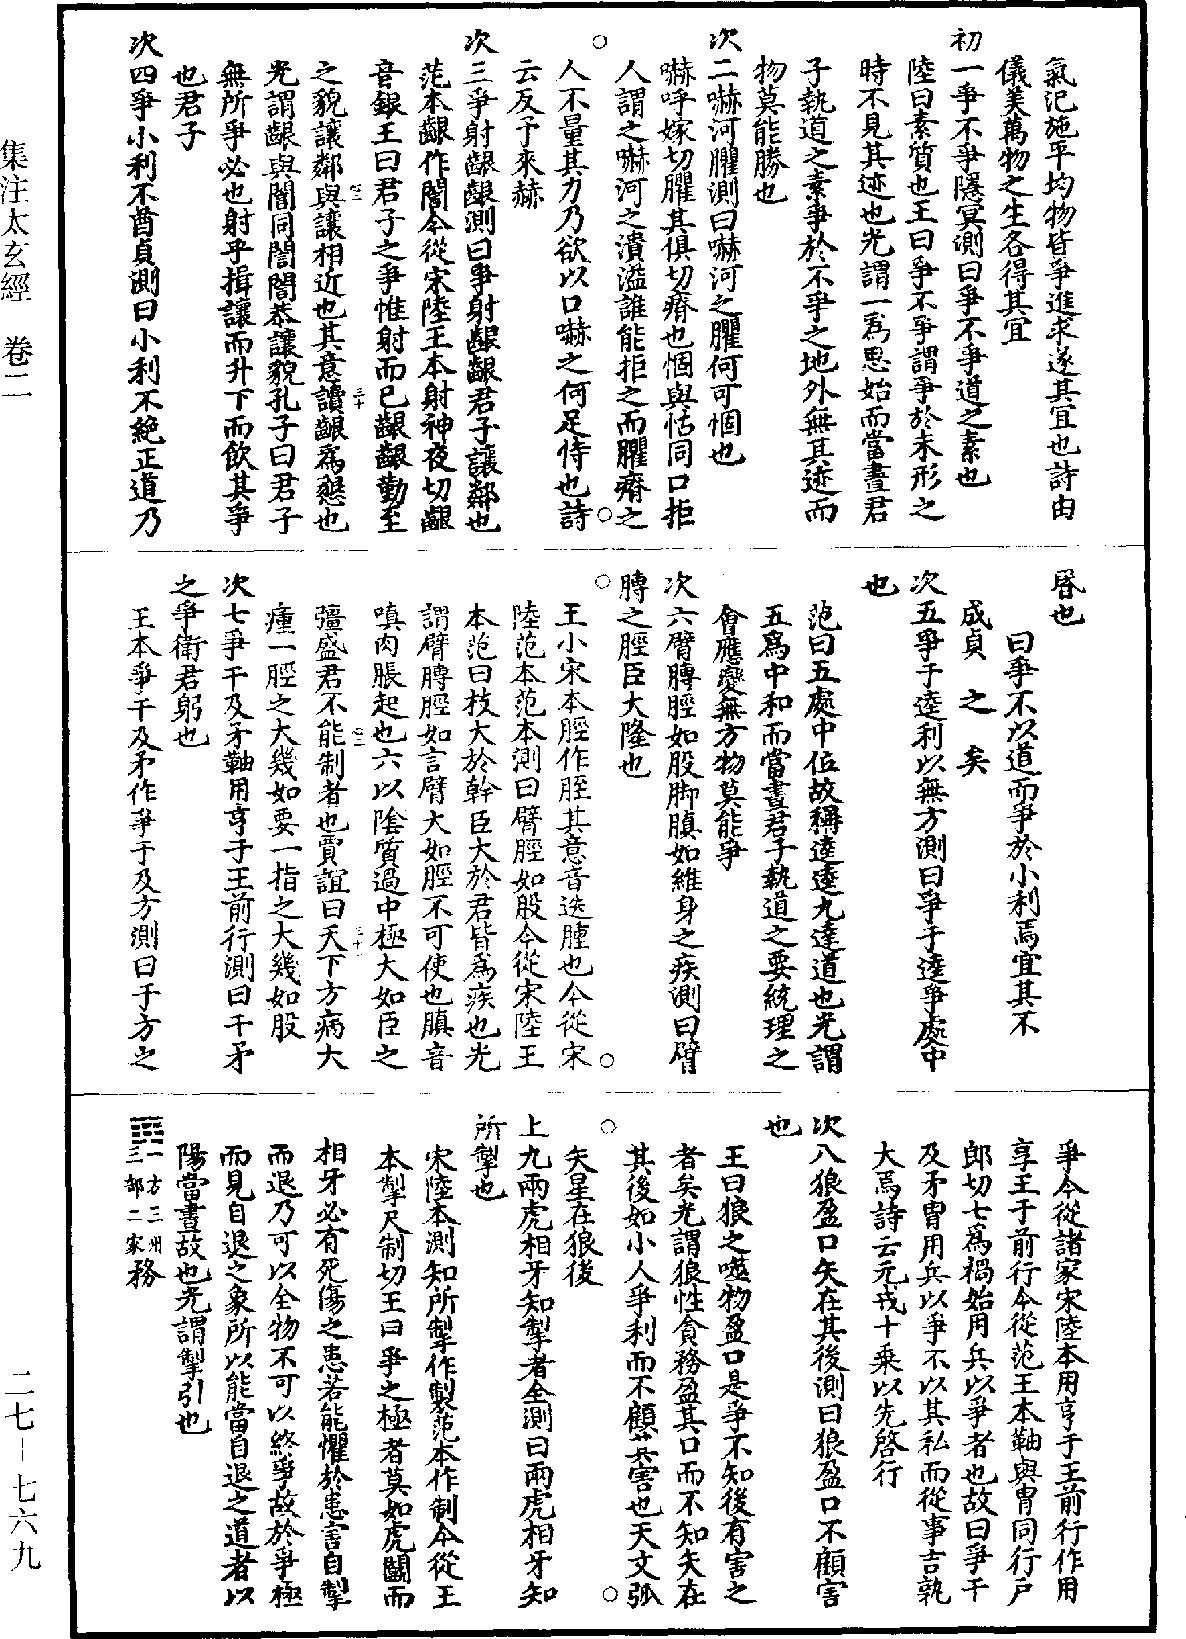 氣汜施平均物皆爭進求遂其宜也詩由
儀美萬物之生各得其宜
初一爭不爭隱冥測曰爭不爭道之素也
陸曰素質也王曰爭不爭謂爭於未形之
時不見其迹也光謂一爲思始而當晝君
子執道之素爭於不爭之地外無其迹而
物莫能勝也
次二嚇河臞測曰嚇河之臞何可悃也
嚇呼嫁切臞其俱切瘠也悃與怙同口拒
人謂之嚇河之潰溢誰能拒之而臞瘠之
人不量其力乃欲以口嚇之何足恃也詩
云反予來赫
次三爭射齦齦測曰爭射齦齦君子讓鄰也
范本齦作誾今從宋陸王本射神夜切齦
音銀王曰君子之爭惟射而已齦齦勤至
之貌讓鄰與讓相近也其意讀齦爲懇也
光謂齦與誾同誾誾恭讓貌孔子曰君子
無所爭必也射乎揖讓而升下而飲其爭
也君子
次四爭小利不酋貞測曰小利不絕正道乃
昬也
曰爭不以道而爭於小利焉宜其不
成貞　之　矣
次五爭于逵利以無方測曰爭于逵爭處中
也
范曰五處中位故稱逵逵九達道也光謂
五爲中和而當晝君子執道之要統理之
會應變無方物莫能爭
次六臂膊脛如股脚䐜如維身之疾測曰臂
膊之脛臣大隆也
王小宋本脛作胵其意音迭腫也今從宋
陸范本范本測曰臂脛如股今從宋陸王
本范曰枝大於幹臣大於君皆爲疾也光
謂臂膊脛如言臂大如脛不可使也䐜音
嗔肉脹起也六以陰質過中極大如臣之
彊盛君不能制者也賈誼曰天下方病大
瘇一脛之大幾如要一指之大幾如股
次七爭干及矛軸用亨于王前行測曰干矛
之爭衛君躬也
王本爭干及矛作爭于及方測曰于方之
爭今從諸家宋陸本用亨于王前行作用
享王于前行今從范王本軸與冑同行戶
郎切七爲禍始用兵以爭者也故曰爭干
及矛冑用兵以爭不以其私而從事吉孰
大焉詩云元戎十乘以先啓行
次八狼盈口矢在其後測曰狼盈口不顧害
也
王曰狼之噬物盈口是爭不知後有害之
者矣光謂狼性貪務盈其口而不知矢在
其後如小人爭利而不顧其害也天文弧
矢星在狼後
上九兩虎相牙知掣者全測曰兩虎相牙知
所掣也
宋陸本測知所掣作製范本作制今從王
本掣尺制切王曰爭之極者莫如虎鬭而
相牙必有死傷之患若能懼於患害自掣
而退乃可以全物不可以終爭故於爭極
而見自退之象所以能當自退之道者以
陽當晝故也光謂掣引也
一方三州
三部二家務
集注太玄經　卷二
二七－七六九